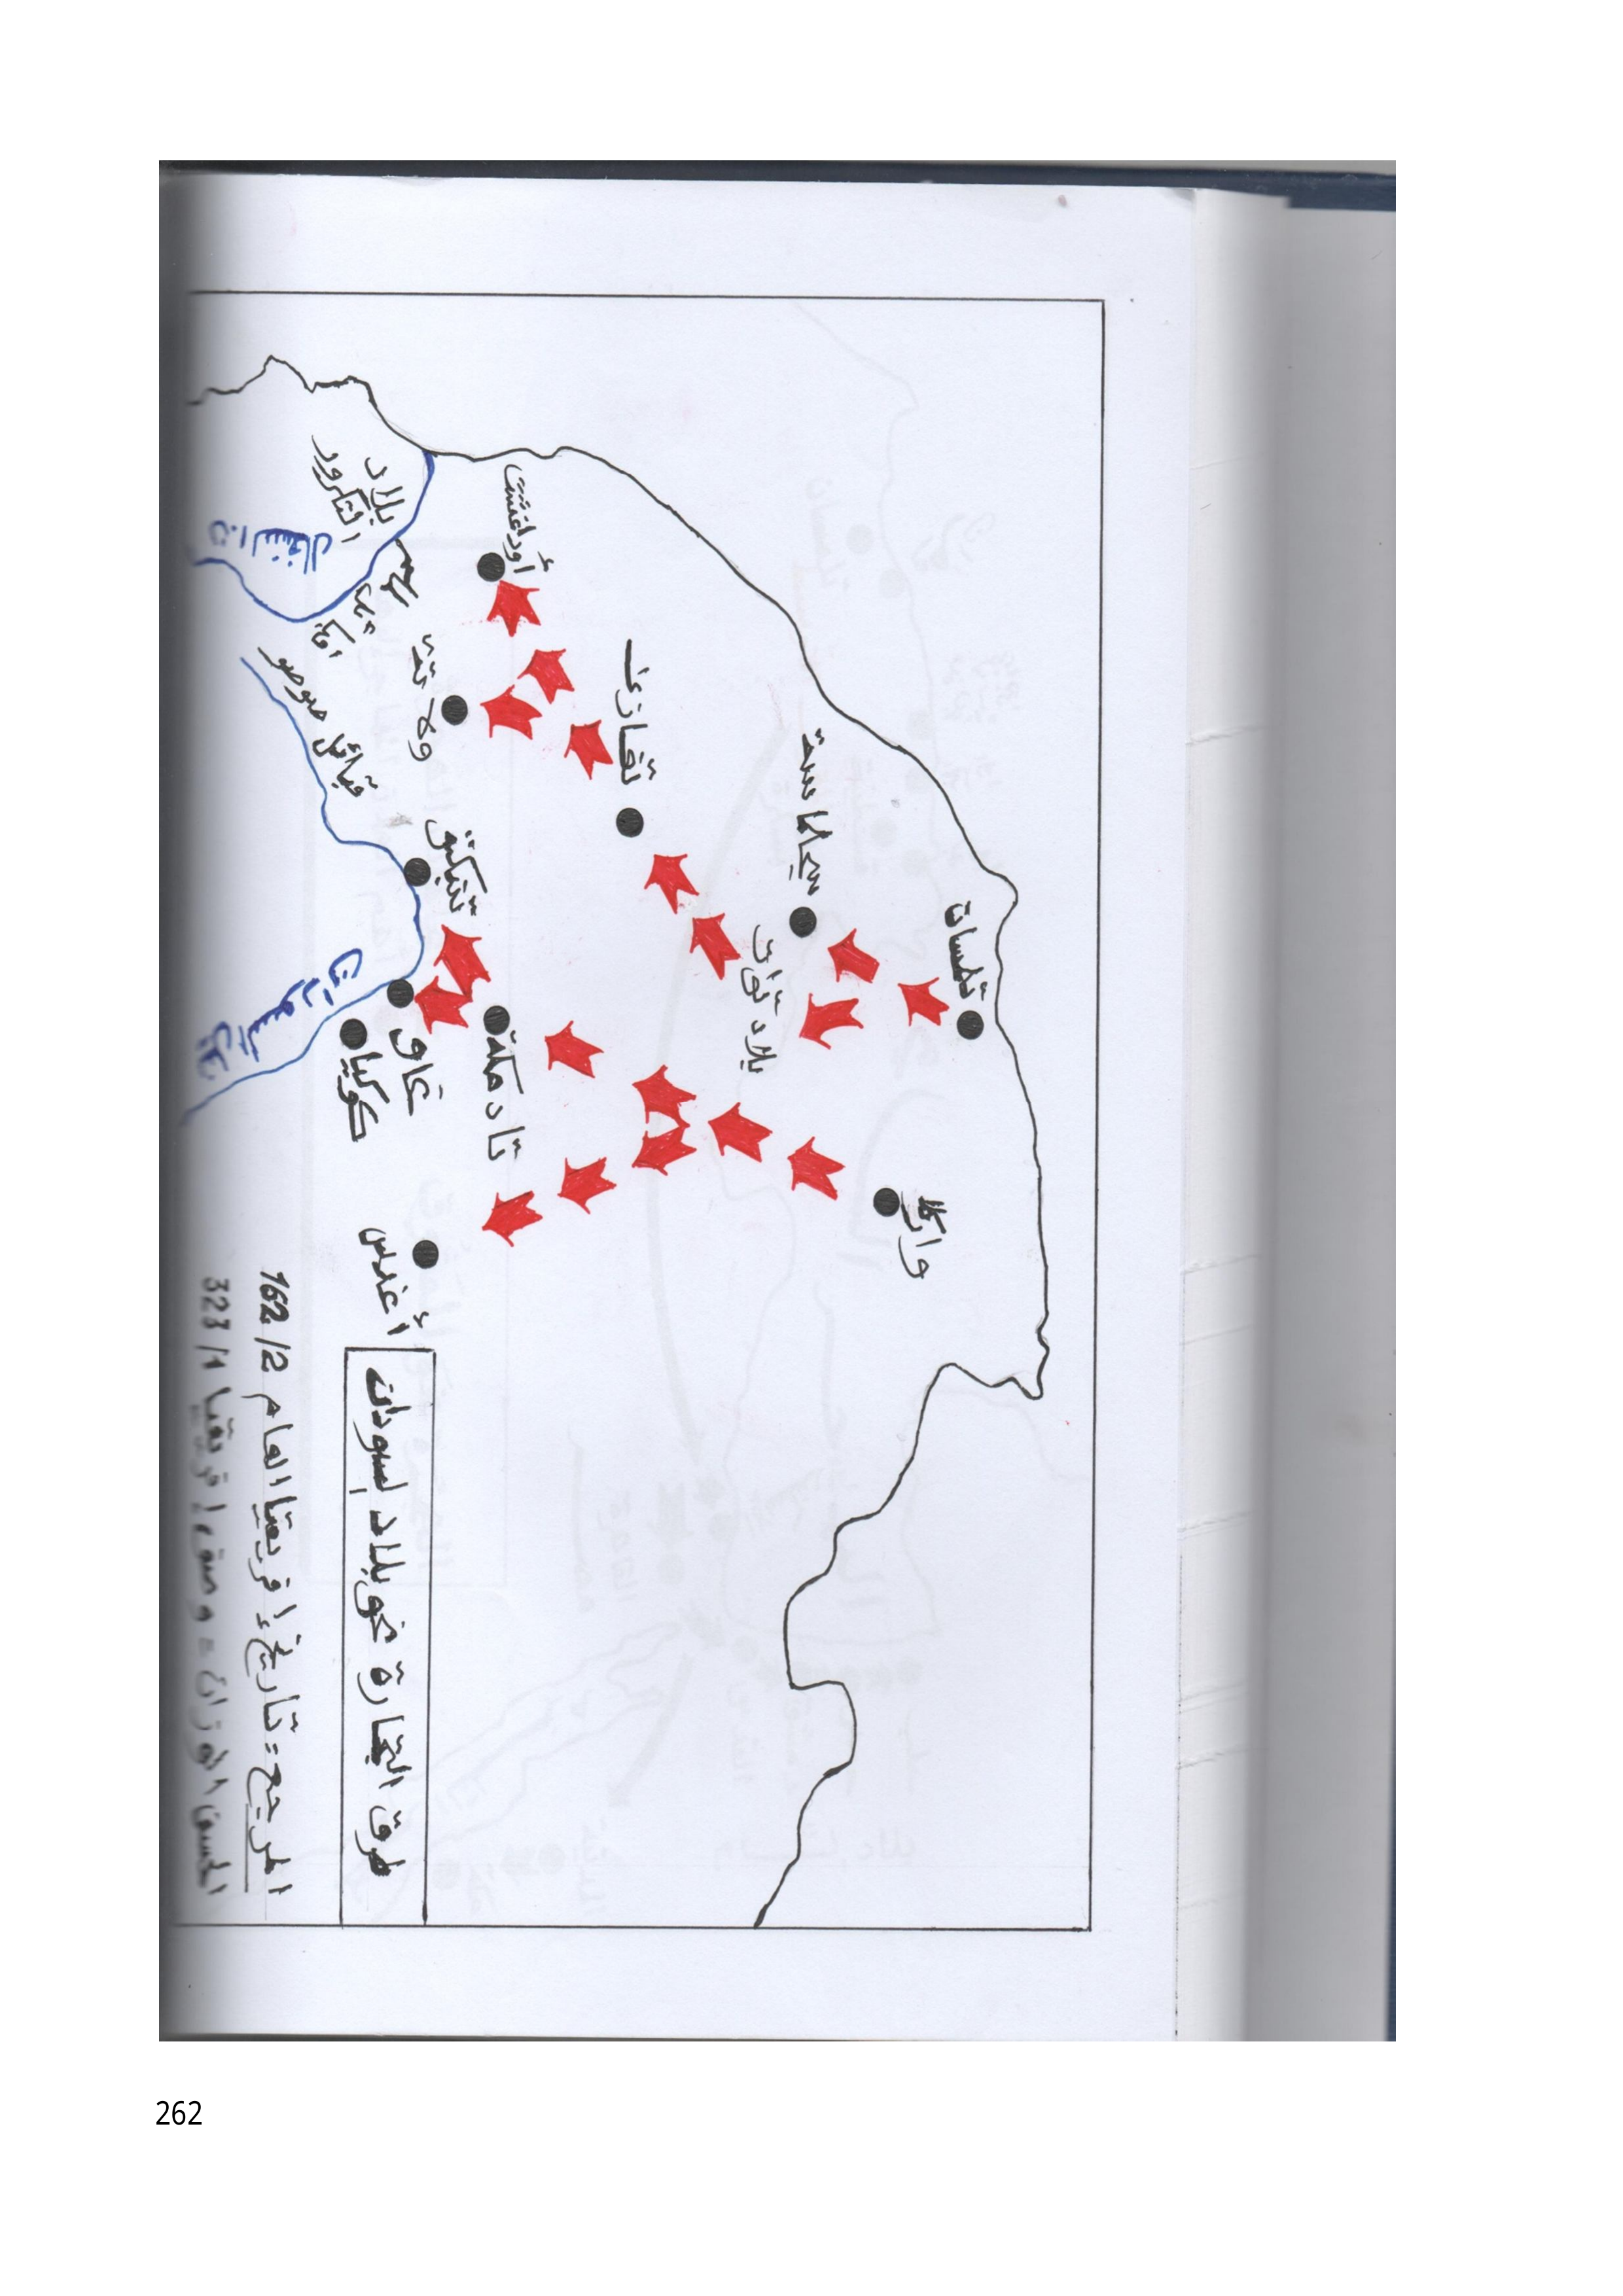 تلمسان
واركلا
سجلماسة
بلاد توات
تغازى
أودغشت
تادمكة
ولاتة
تنبكتو
غاو
كوكيا
أغدس
بلاد
التكرور
ن. السنغال
قبائل صوصو
طرق التجارة نحو بلاد السودان
المرجع: تاريخ إفريقيا العام 162/2
الحسن الوزان = وصف إفريقيا 323/1
262